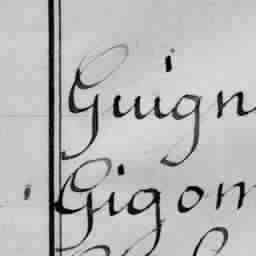 Guign
Gigom